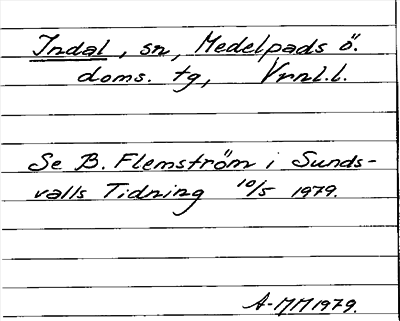 Indal, sn, Medelpads ö.
doms. tg, Vrnl.l.
Se B. Flemström i Sunds-
valls Tidning 10/5 1979.
A-MM1979.